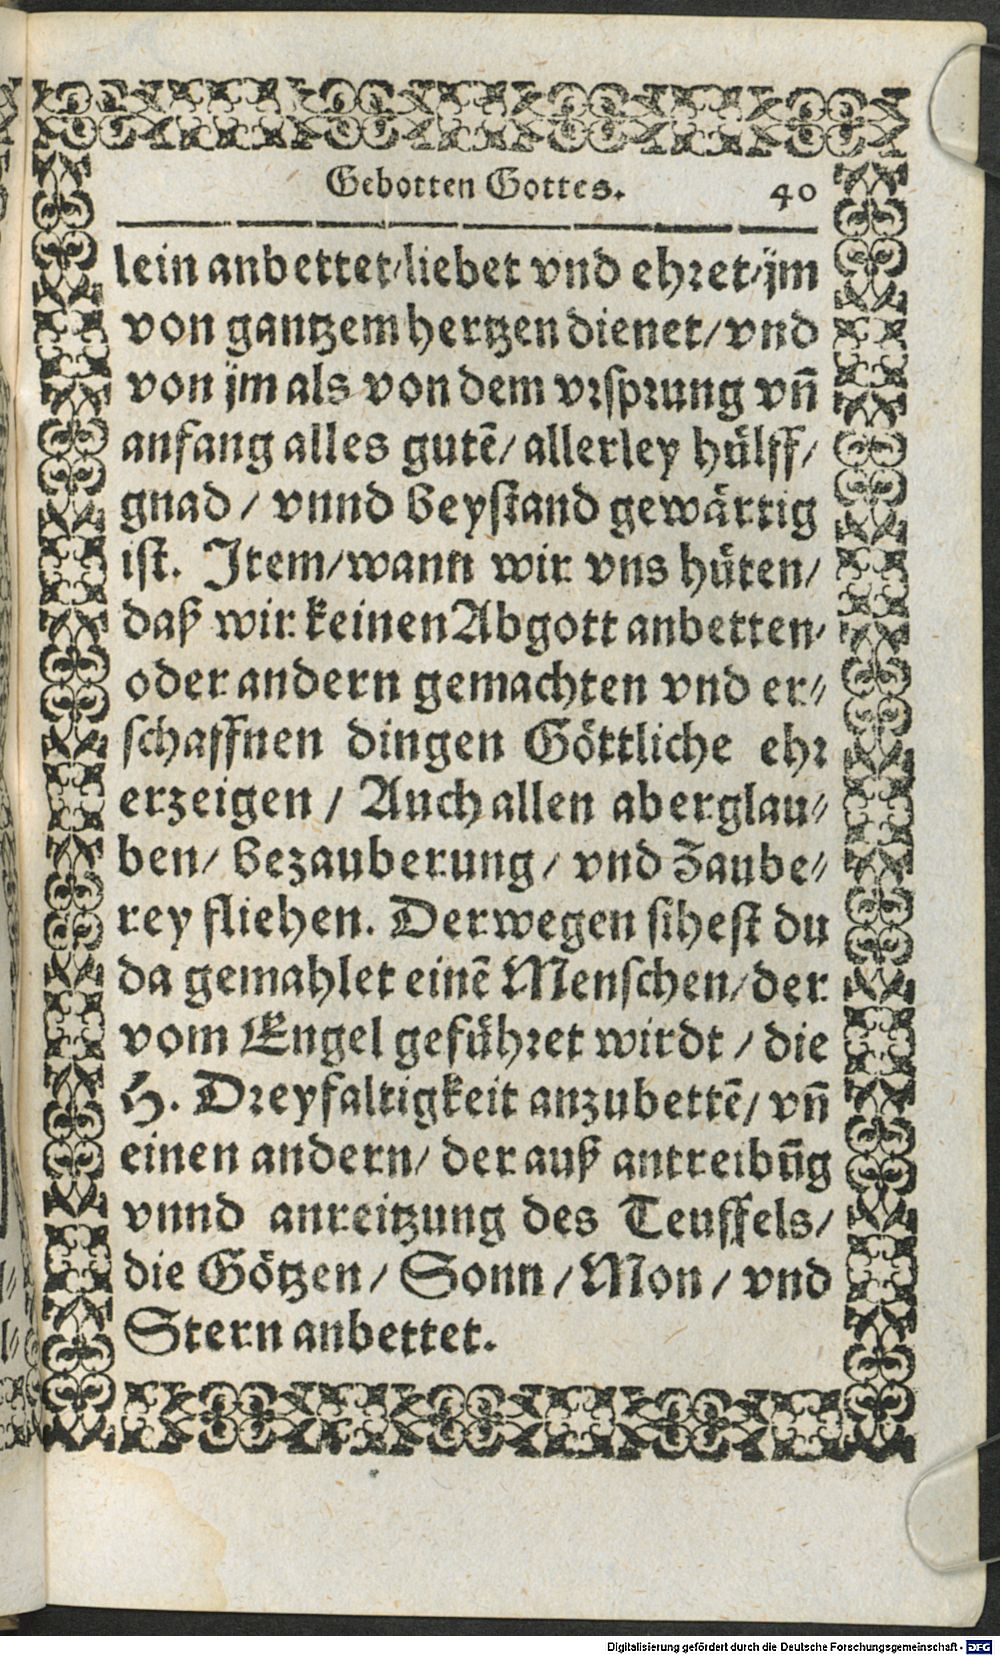 Gebotten Gottes. 40
lein anbettet/liebet vnd ehret/jm
von gantzem hertzen dienet/vnd
von jm als von dem vrsprung vn̄
anfang alles gutē/allerley hülff/
gnad/ vnnd beystand gewärtig
ist. Item/wann wir vns hüten/
daß wir keinen Abgott anbetten/
oder andern gemachten vnd er⸗
schaffnen dingen Göttliche ehr
erzeigen/ Auch allen aberglau⸗
ben/ bezauberung/ vnd Zaube⸗
rey fliehen. Derwegen sihest du
da gemahlet einē Menschen/der
vom Engel geführet wirdt/ die
H. Dreyfaltigkeit anzubettē/ vn̄
einen andern/ der auß antreibūg
vnnd anreitzung des Teuffels/
die Götzen/ Sonn/Mon/ vnd
Stern anbettet.
Digitalisierung gefördert durch die Deutsche Forschungsgemeinschaft - DFG